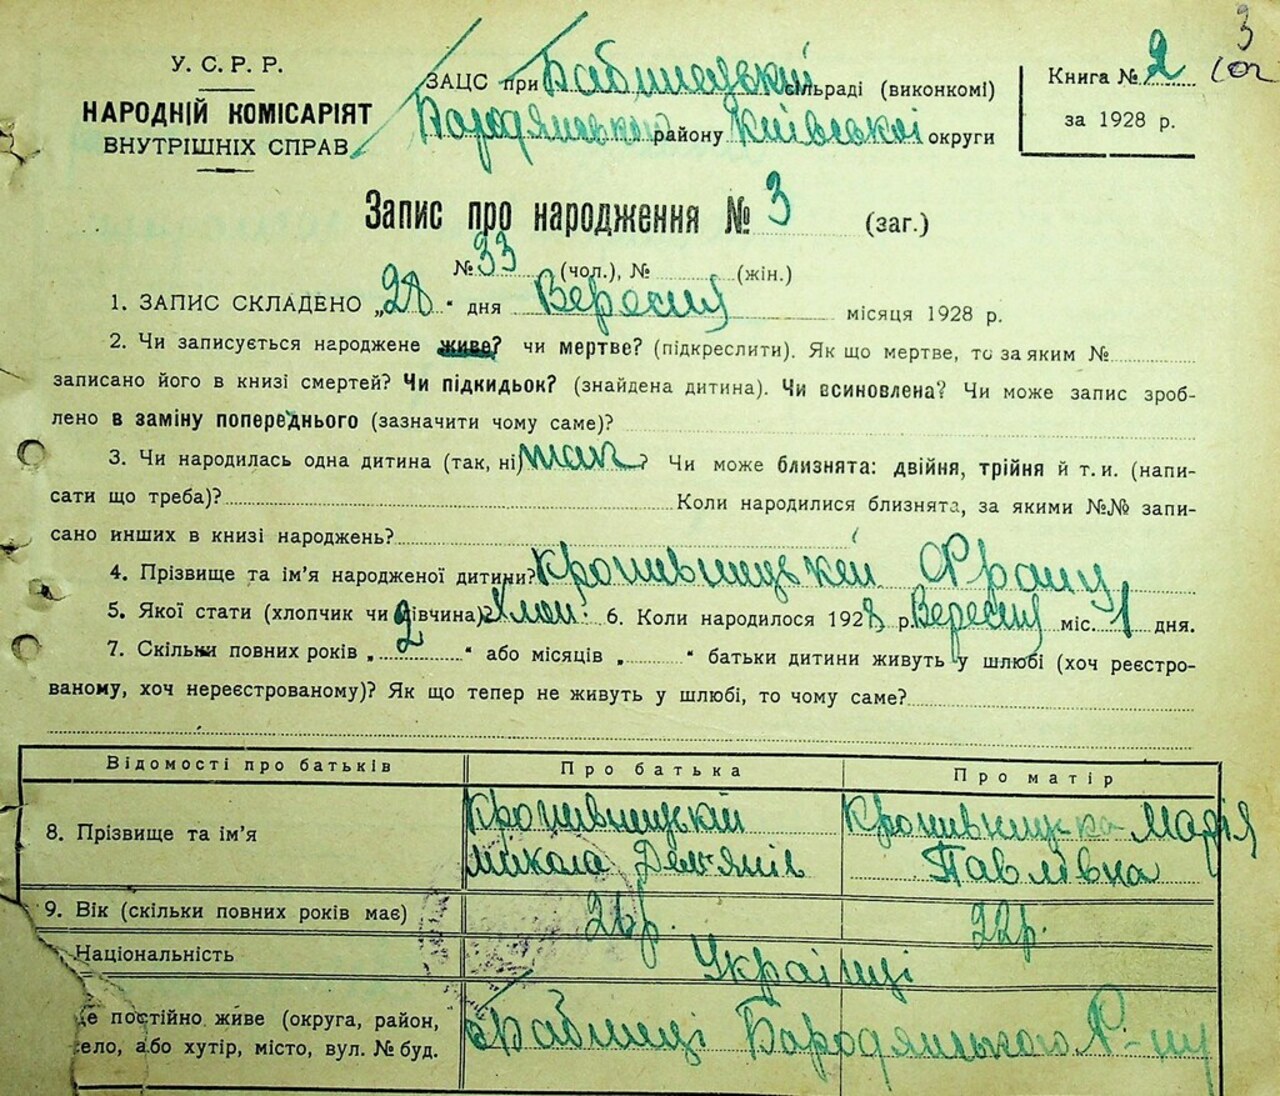 3
У. С. Р. Р.
НАРОДНІЙ КОМІСАРІЯТ
ВНУТРІШНІХ СПРАВ
ЗАЦС при Бабинецькій сільраді (виконкомі)
Бородянського району Київської округи
Книга № 2
за 1928 р.
Запис про народження № 3 (заг.)
№ 33 (чол.), № (жін.)
1. ЗАПИС СКЛАДЕНО „28“ дня Вересня місяця 1928 р.
2. Чи записується народжене живе? чи мертве? (підкреслити). Як що мертве, то за яким №
записано його в книзі смертей? Чи підкидьок? (знайдена дитина). Чи всиновлена? Чи може запис зроб-
лено в заміну попереднього (зазначити чому саме)?
3. Чи народилась одна дитина (так, ні) так? Чи може близнята: двійня, трійня й т. и. (напи-
сати що треба)? Коли народилися близнята, за якими №№ запи-
сано инших в книзі народжень?
4. Прізвище та ім'я народженої дитини? Кропивницький Франц
5. Якої стати (хлопчик чи дівчина)? Хлоп: 6. Коли народилося 1928 р. Вересня міс. 1 дня.
7. Скільки повних років „2“ або місяців „ “ батьки дитини живуть у шлюбі (хоч реєстро-
ваному, хоч нереєстрованому)? Як що тепер не живуть у шлюбі, то чому саме?
Відомості про батьків Про батька Про матір
8. Прізвище та ім'я
Кропивницькій
Микола Дем'янів
Кропивницька Марія
Павлівна
9. Вік (скільки повних років має) 26 р. 22 р.
Національність Українці
де постійно живе (округа, район,
село, або хутір, місто, вул. № буд.
с Бабинці Бородянського Р-ну